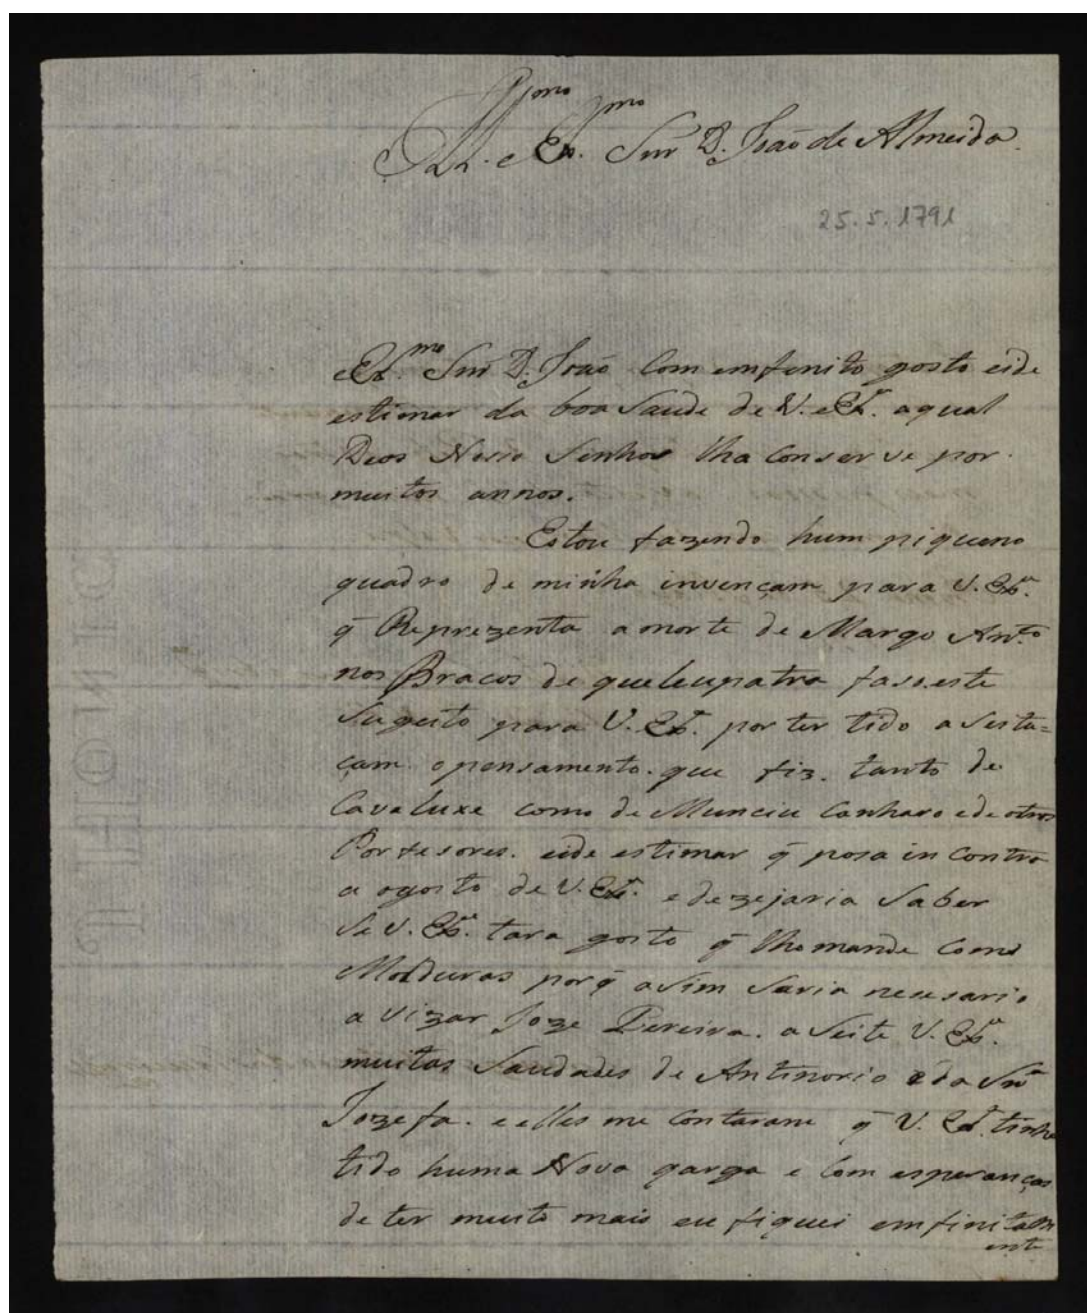 Ill.mo e Ex.mo Snr D. João de Almeida.
25.5.1791
Ex.mo Snr D. João Com emfenito gosto eide
estimar da boa Saude de V. Ex.ª aqual
Deos Noso Senhor lha Conserve por
muitos annos.
Estou fazendo hum piqueno
quadro de minha invençam para V. Ex.ª
q̃ Reprezenta amorte de Margo Ant.º
nos Bracos de queleupatra faso este
Sugeito para V. Ex.ª por ter tido a Seita=
çam opensamento. que fiz. tanto de
Cavaluxe como de Munciu Canharo ede otros
Porfesores. eide estimar q̃ posa in Contra
a ogosto de V. Ex.ª e dezejaria Saber
Se V. Ex.ª tara gosto q̃ lhomande Come
Molduras porq̃ asim Saria nesesario
a vizar Joze Pereira. a Seite V. Ex.ª
muitas Saudades de Antinorio e da Snr.ª
Jozefa. e elles me Contaram q̃ V. Ex.ª tinha
tido huma Nova garga e Com esperanças
de ter muito mais eu fiquei emfinitam
ente
THONIG